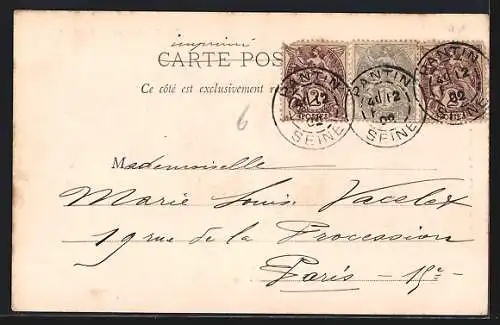 imprimé
CARTE POS
Ce côté est exclusivement r
PANTIN
12
02
SEINE
PANTIN
12
02
SEINE
PANTIN
12
02
SEINE
6
Mademoiselle
Marie Louis
19 rue de la Procession
Paris - 15e -